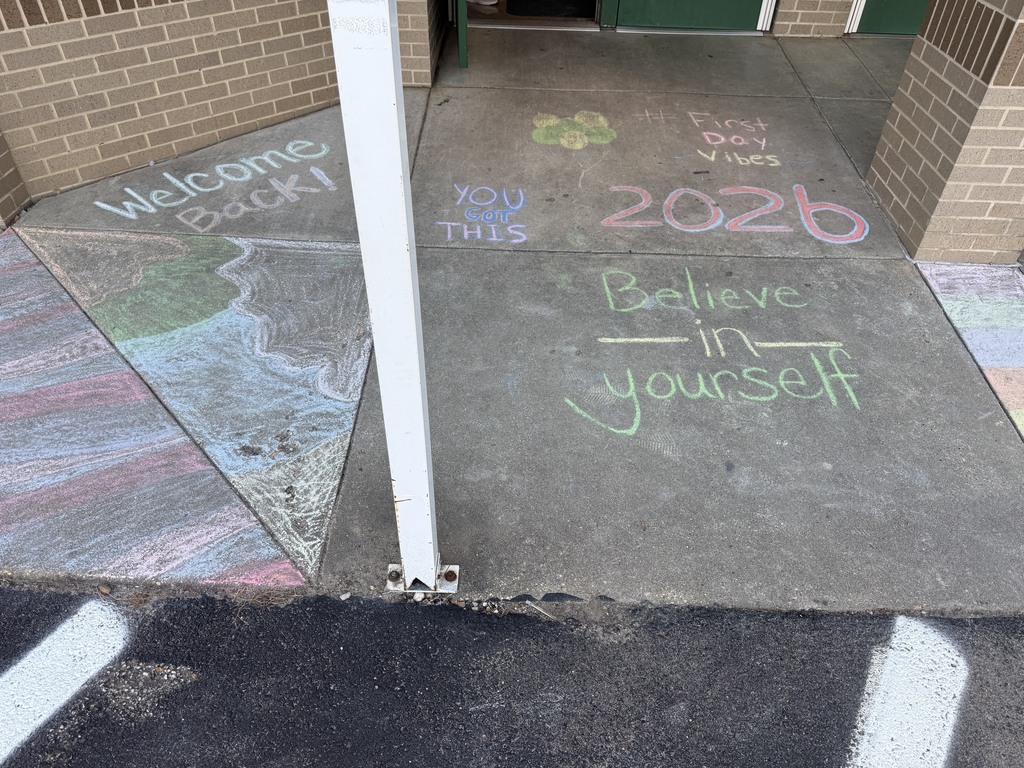 Welcome
Back!
# First
Day
Vibes
YOU
GOT
THIS
2026
Believe
in
yourself